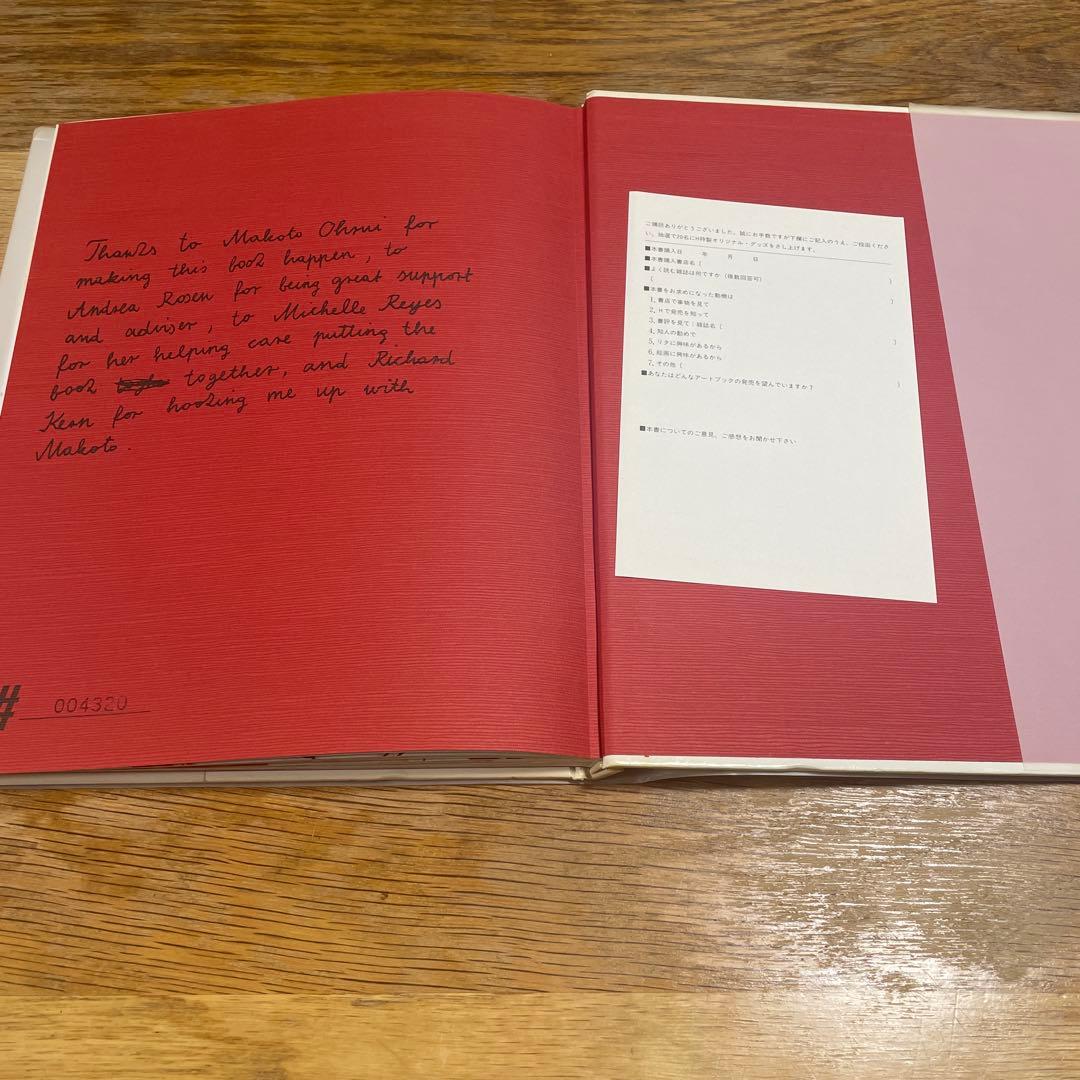 Thanks to Makoto Ohrui for
making this book happen, to
Andrea Rosen for being great support
and adviser, to Michelle Reyes
for her helping care putting the
book together, and Richard
Kern for hooking me up with
Makoto.
# 004320
ご購読ありがとうございました。誠にお手数ですが下欄にご記入のうえ、ご投函くださ
い。抽選で20名にH特製オリジナル・グッズをさし上げます。
■本書購入日 年 月 日
■本書購入書店名（ ）
■よく読む雑誌は何ですか（複数回答可）
（ ）
■本書をお求めになった動機は
1. 書店で事物を見て
2. Hで発売を知って
3. 書評を見て：雑誌名（ ）
4. 知人の勧めで
5. リタに興味があるから
6. 絵画に興味があるから
7. その他（ ）
■あなたはどんなアートブックの発売を望んでいますか？
■本書についてのご意見、ご感想をお聞かせ下さい